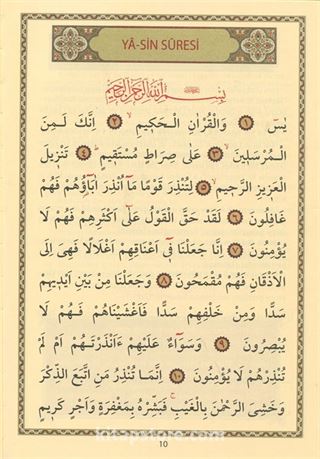 YÂ-SİN SÛRESİ
بِسْمِ اللّٰهِ الرَّحْمٰنِ الرَّحِيمِ
يٰسٓ ﴿١﴾ وَالْقُرْاٰنِ الْحَكِيمِ ﴿٢﴾ اِنَّكَ لَمِنَ
الْمُرْسَلِينَ ﴿٣﴾ عَلٰى صِرَاطٍ مُسْتَقِيمٍ ﴿٤﴾ تَنْزِيلَ
الْعَزِيزِ الرَّحِيمِ ﴿٥﴾ لِتُنْذِرَ قَوْمًا مَٓا اُنْذِرَ اٰبَٓاؤُ۬هُمْ فَهُمْ
غَافِلُونَ ﴿٦﴾ لَقَدْ حَقَّ الْقَوْلُ عَلٰٓى اَكْثَرِهِمْ فَهُمْ لَا
يُؤْمِنُونَ ﴿٧﴾ اِنَّا جَعَلْنَا فٓى اَعْنَاقِهِمْ اَغْلَالًا فَهِىَ اِلَى
الْاَذْقَانِ فَهُمْ مُقْمَحُونَ ﴿٨﴾ وَجَعَلْنَا مِنْ بَيْنِ اَيْدِيهِمْ
سَدًّا وَمِنْ خَلْفِهِمْ سَدًّا فَاَغْشَيْنَاهُمْ فَهُمْ لَا
يُبْصِرُونَ ﴿٩﴾ وَسَوَٓاءٌ عَلَيْهِمْ ءَاَنْذَرْتَهُمْ اَمْ لَمْ
تُنْذِرْهُمْ لَا يُؤْمِنُونَ ﴿١٠﴾ اِنَّمَا تُنْذِرُ مَنِ اتَّبَعَ الذِّكْرَ
وَخَشِىَ الرَّحْمٰنَ بِالْغَيْبِ فَبَشِّرْهُ بِمَغْفِرَةٍ وَاَجْرٍ كَرِيمٍ
10